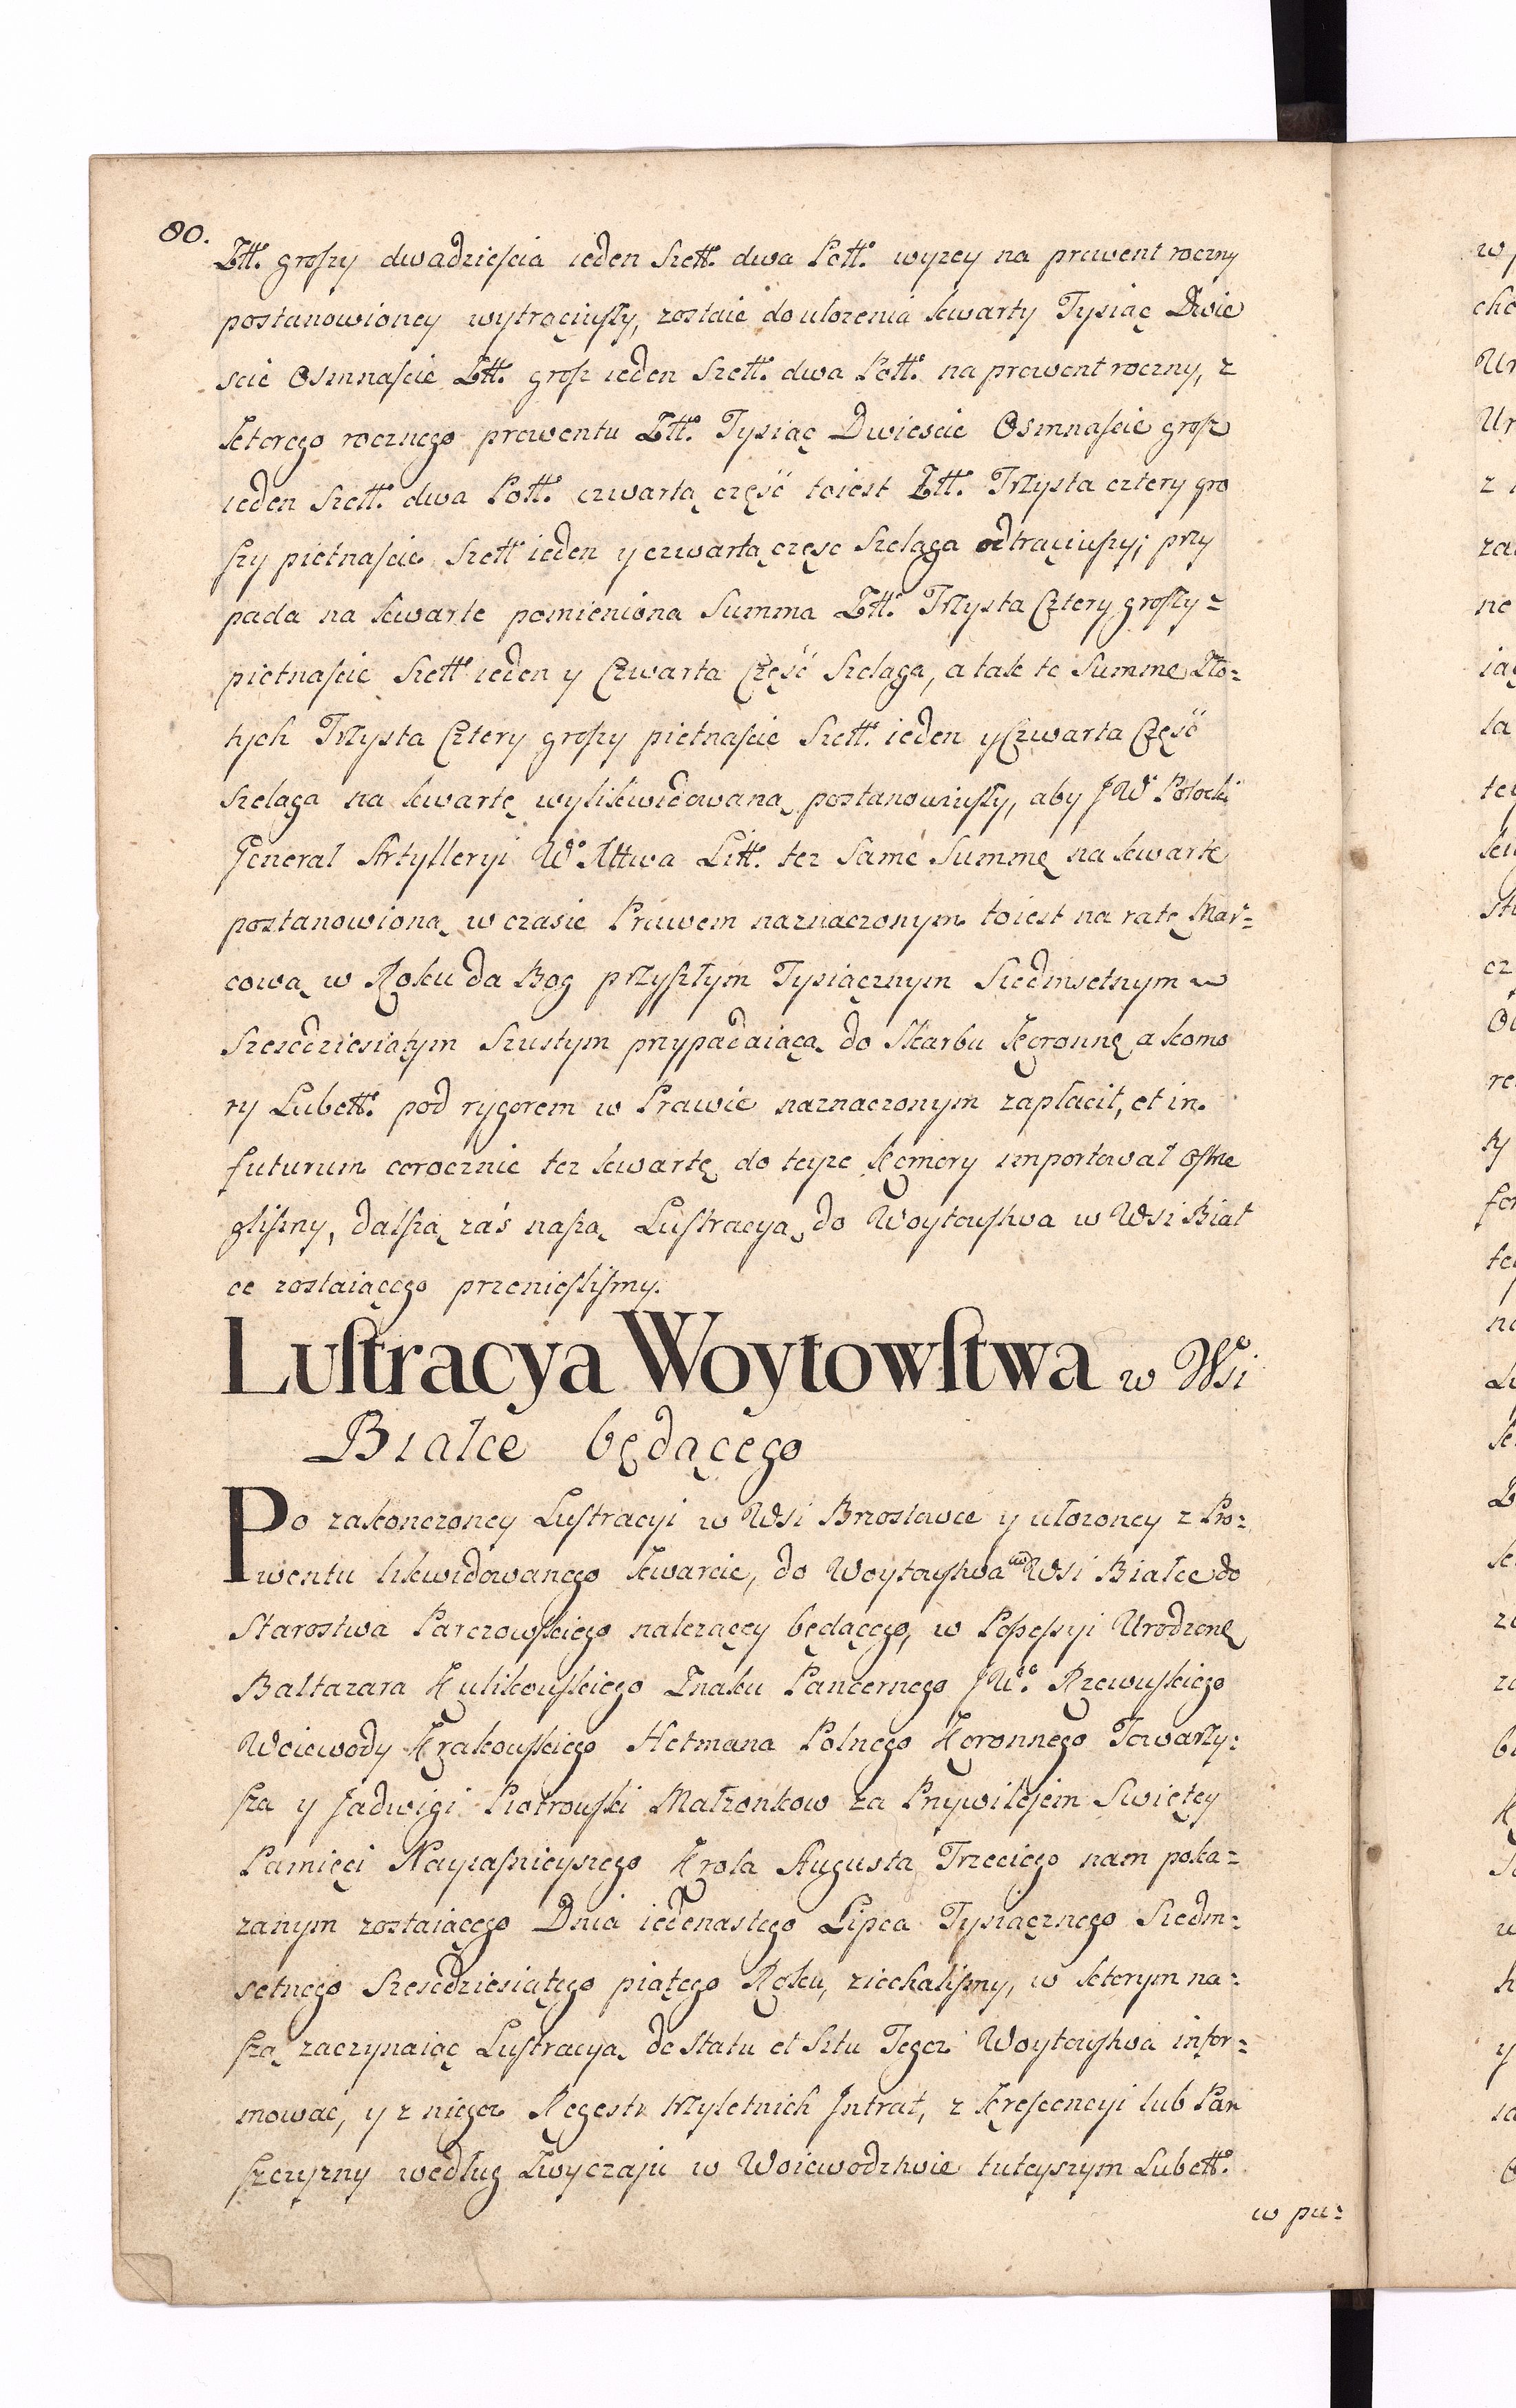 80.
Ztt. groſzy dwadzieſcia ieden Szett. dwa Pott. wyzey na prowent roczny
postanowioney wytrąciuſzy, zostaie do ulozenia kwarty Tysiąc Dwie
scie Osmnaſcie Ztt. groſz ieden Szett. dwa Pott. na prowent roczny, z
ktorego rocznego prowentu Ztt. Tysiąc Dwiescie Osmnaſcie groſz
ieden Szett. dwa Pott. czwartą część toiest Ztt. Trzysta cztery gro
ſzy piętnaſcie Szett ieden y czwartą częsc Szeląga odtrąciuſzy; przy
pada na kwarte pomieniona Summa Ztt. Trzysta Cztery groſzy=
piętnaſcie Szett ieden y Czwarta Część Szeląga, a tak te Summe Zło=
tych Trzysta Cztery groſzy piętnaſcie Szett. ieden y Czwarta Część
Szelaga na kwartę wylikwidowaną postanowiuſzy, aby JW Potocki
General Artylleryi W Xttwa Litt. tez Samę Summę na kwarte
postanowioną w czasie Prawem naznaczonym toiest na ratę Mar=
cową w Roku da Bog przyſzłym Tysiącznym Siedmsetnym
Szescdziesiątym Szustym przypadaiącą do Skarbu Koronnę a komo
ry Lubett. pod rygorem w Prawie naznaczonym zapłacił, et in
futurum corocznie tez kwartę do teyze Komory importował oſtrze
gliſmy, dalſzą zaś naſzą Luſtracyą do Woytouſtwa w Wsi Biał
ce zostaiącego przenieſliſmy.
Luſtracya Woytowſtwa w Wsi
Białce będącego
Po zakonczoney Luſtracyi w Wsi Brzostowce y ułozoney z Pro=
wentu likwidowanego kwarcie, do Woytouſtwa w Wsi Białce do
Starostwa Parczowſkiego nalezącey będącego, w Poſseſsyi Urodzonę
Baltazara Kulikouſkiego Znaku Pancernego JW. Rzewuſkiego
Woiewody Krakouſkiego Hetmana Polnego Koronnego Towarzy=
ſza y Jadwigi Piotrouſki Małzonkow za Przywilejem Swiętey
Pamięci Nayiaſnieyszego Krola Augusta Trzeciego nam poka=
zanym zostaiącego Dnia iedenastego Lipca Tysiącznego Siedm=
setnego Szescdziesiątego piątego Roku, ziechaliſmy, w ktorym na=
ſzą zaczynaiąc Luſtracyą de Statu et Situ Tegoz Woytouſtwa infor=
mować, y z niegoz Regestr trzyletnich Jntrat, z Kreſcencyi lub Pan
ſzczyzny według Zwyczaju w Woiewodztwie tuteyszym Lubett.
w pu=